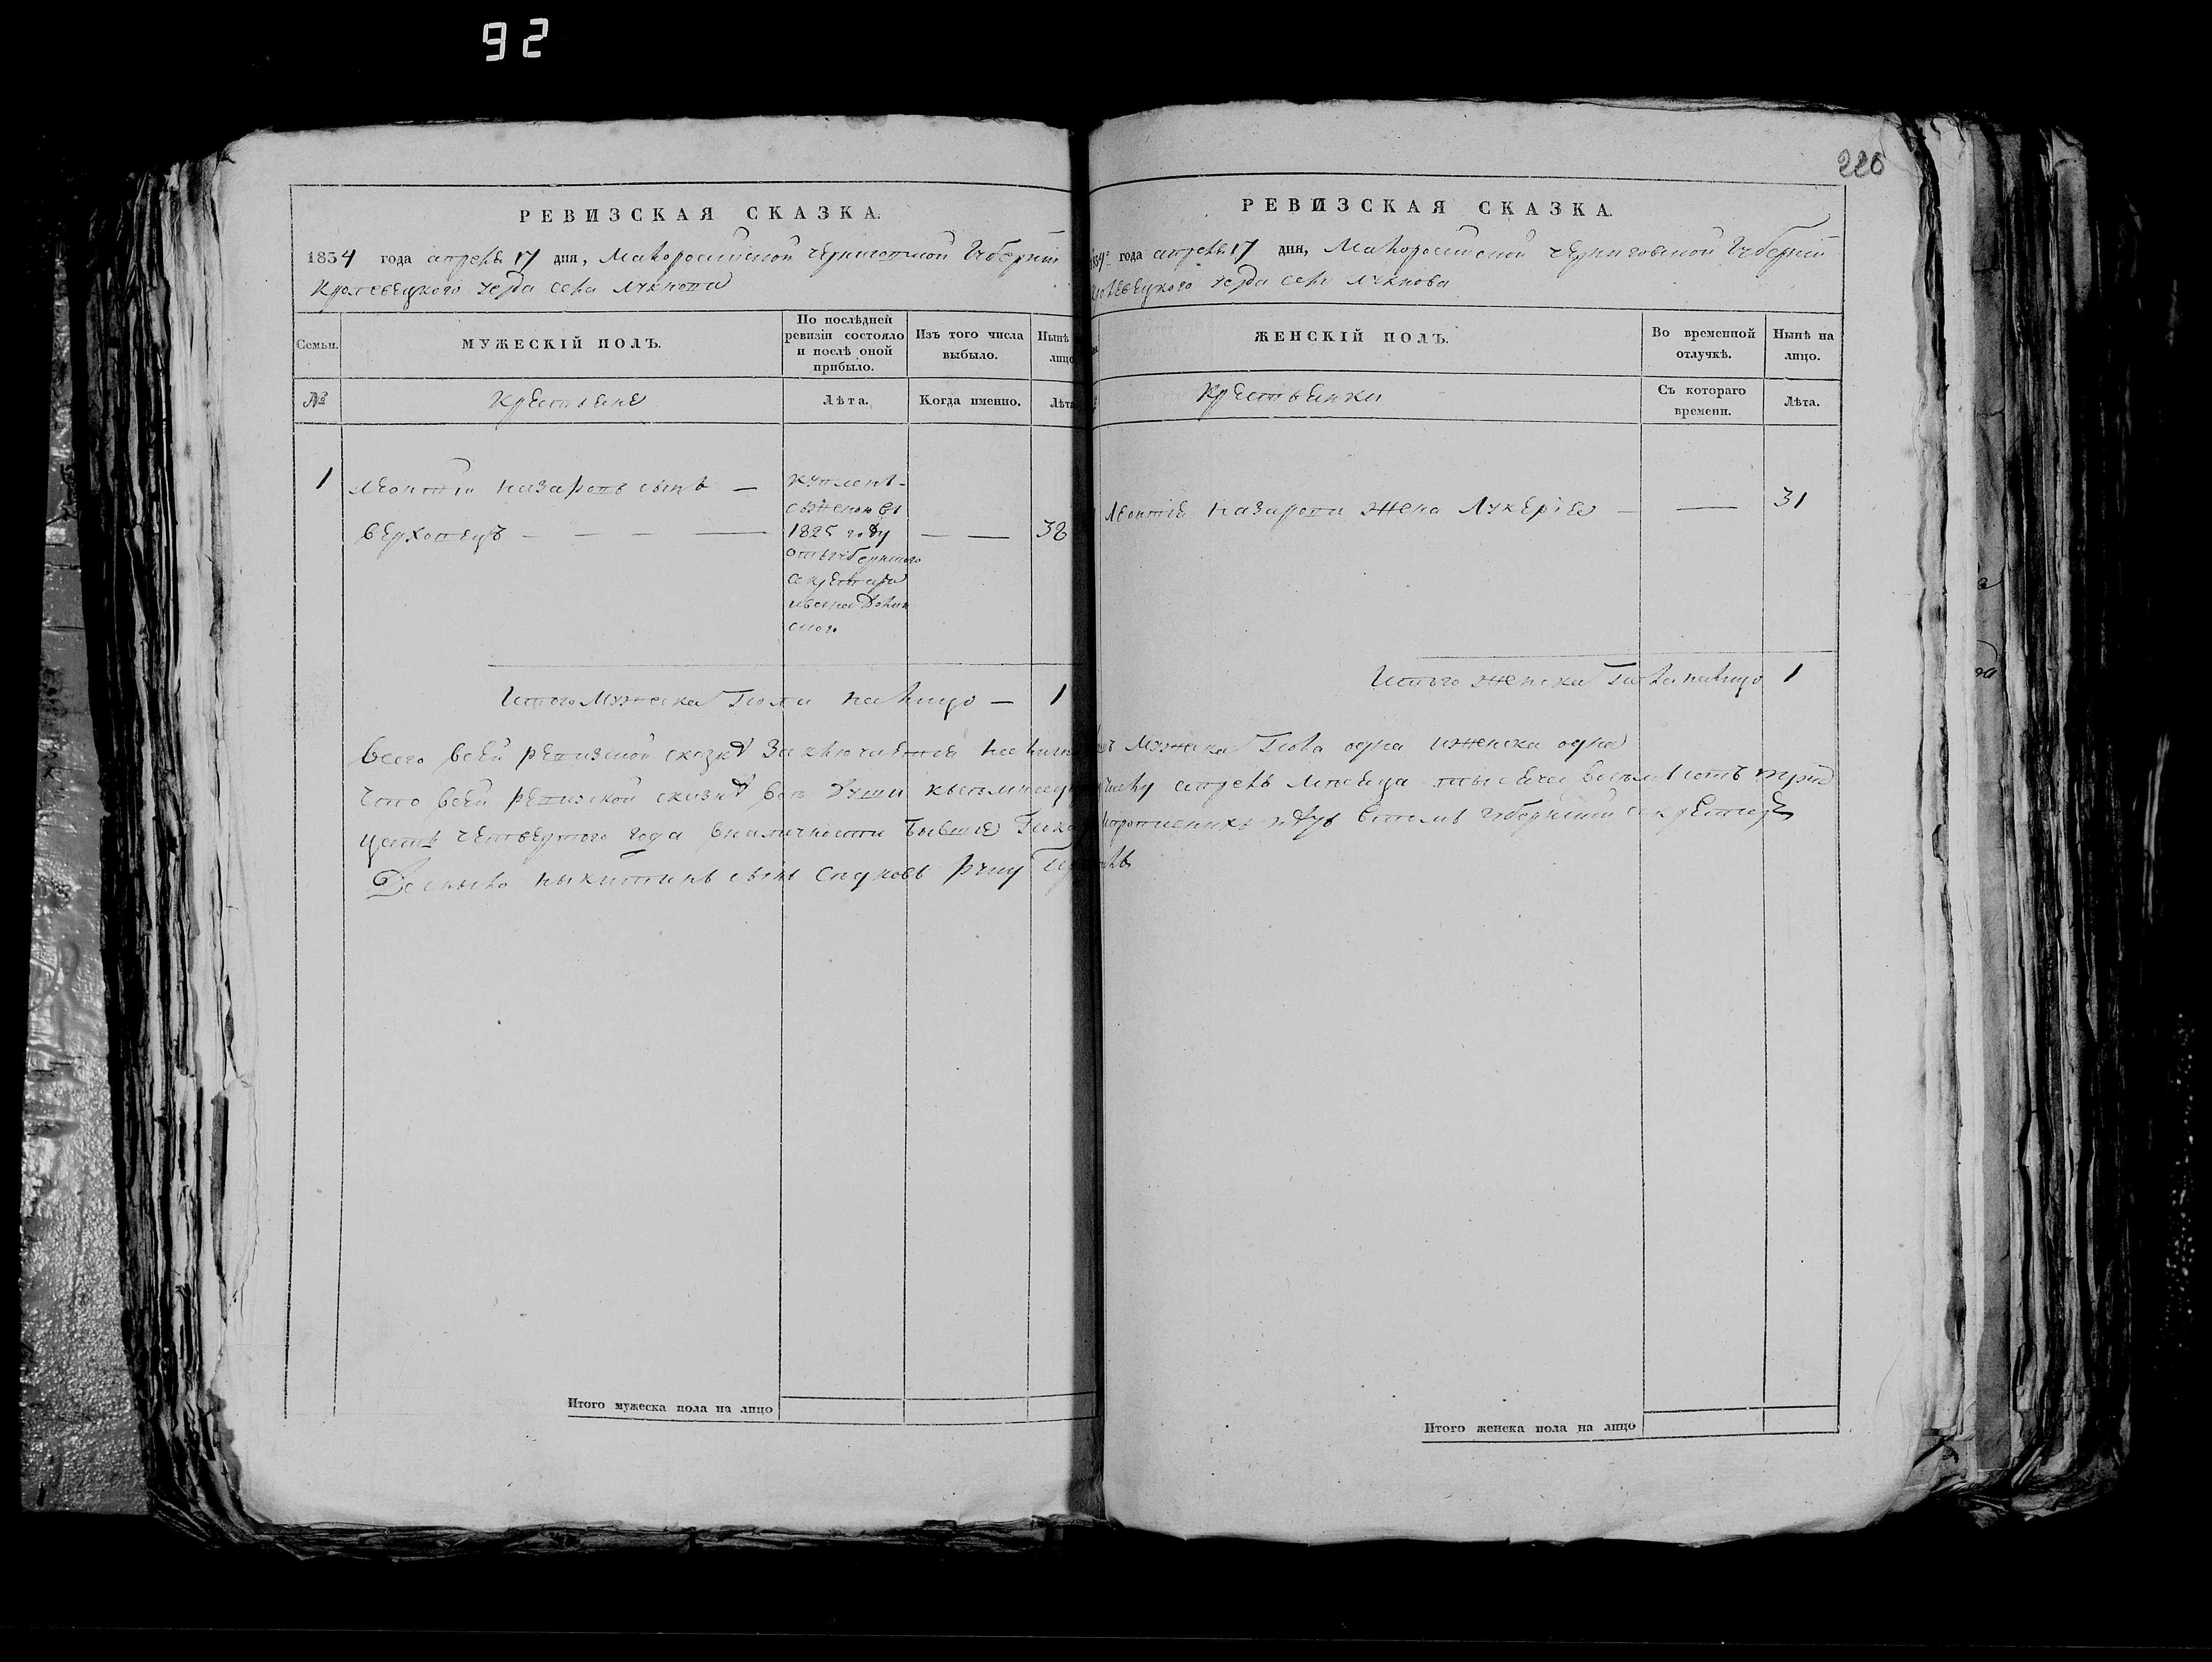 92
РЕВИЗСКАЯ СКАЗКА.
1834 года апреля 17 дня, Малоросийской черниговской Губернiи
Кролевецкого уезда села Лукнова
Семьи.
МУЖЕСКIЙ ПОЛЪ.
По послѣдней ревизiи состояло и послѣ оной прибыло.
Изъ того числа выбыло.
Нынѣ лицо
№
Крестьяне
Лѣта.
Когда именно.
Лѣта
1
Леонтiи назаровъ сынъ —
Верховецъ — — — —
купленъ
сженою въ
1825 году
отъ губернского
секретаря
ивана
ского
— —
38
Итого Мужеска Пола налицо — 1
Итого мужеска пола на лицо
220
РЕВИЗСКАЯ СКАЗКА.
1834 года апреля 17 дня, Малоросийской черниговской Губернiи
Кролевецкого уезда села Лукнова
ЖЕНСКIЙ ПОЛЪ.
Во временной отлучкѣ.
Нынѣ на лицо.
Крестьянки
Съ котораго времени.
Лѣта.
Леонтiя назарова жена Лукерiя — —
31
Итого женска Пола налицо 1
Всего всей ревизской сказкѣ заключающiя налицо мужеска Пола одна иженска одна
что всей ревизской сказкѣ все души апрель месяца тысяча восемъсотъ трид
цать четвертого года вналичности бывшiя нѣтъ втомъ губернский секретарь
никитинъ сынъ руку
Итого женска пола на лицо